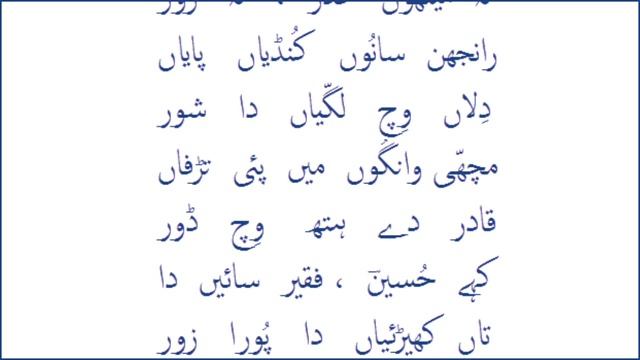 زور
رانجھن سانُوں کُنڈیاں پایاں
دِلاں وِچ لگّیاں دا شور
مچھّی وانگُوں میں پئی تڑفاں
قادر دے ہتھ وِچ ڈور
کہے حُسینؔ ، فقیر سائیں دا
تاں کھیڑئیاں دا پُورا زور